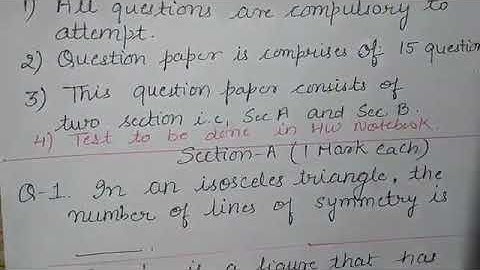 1) All questions are compulsory to
attempt.
2) Question paper is comprises of 15 question
3) This question paper consists of
two section i.e, Sec A and Sec B.
4) Test to be done in HW Notebook.
Section-A (1 Mark each)
Q-1. In an isosceles triangle, the
number of lines of symmetry is
______.
is a figure that has